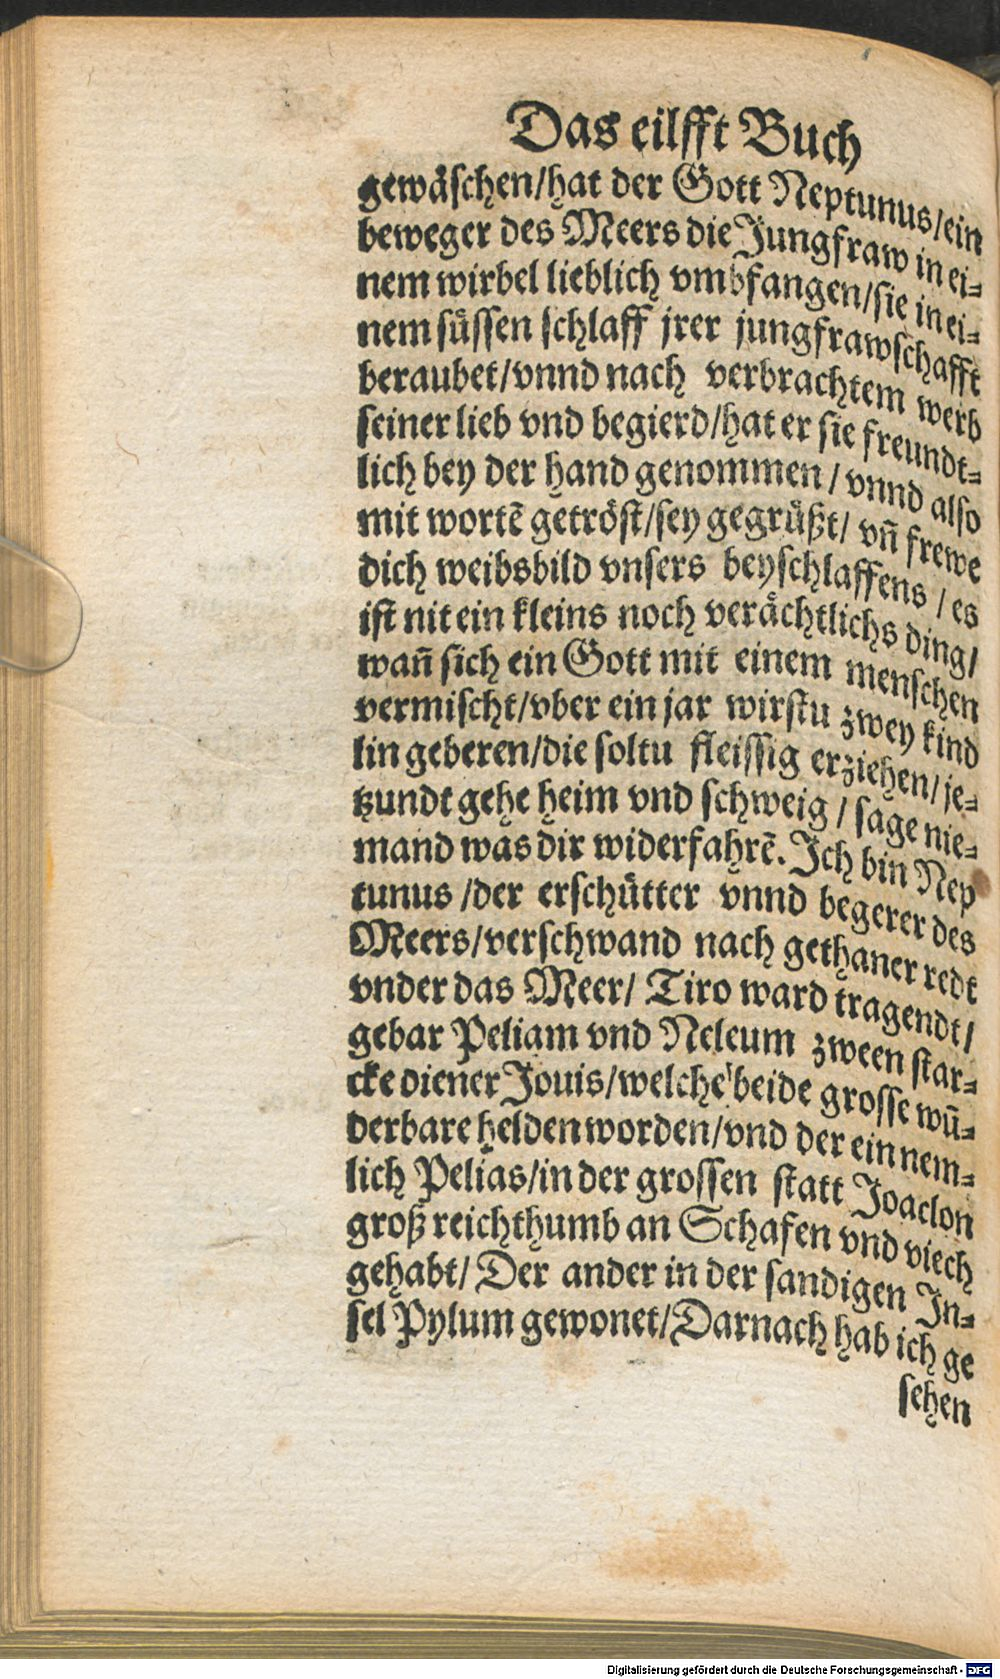 Das eilfft Buch
gewäſchen/hat der Gott Neptunus/ein
beweger des Meers die Jungfraw in ei⸗
nem wirbel lieblich vmbfangen/ſie in ei⸗
nem ſüſſen ſchlaff jrer jungfrawſchafft
beraubet/vnnd nach verbrachtem werb
ſeiner lieb vnd begierd/hat er ſie freundt⸗
lich bey der hand genommen / vnnd alſo
mit wortẽ getröſt/ſey gegrüßt/ vñ frewe
dich weibsbild vnſers beyſchlaffens / es
iſt nit ein kleins noch verächtlichs ding/
wañ ſich ein Gott mit einem menſchen
vermiſcht/vber ein jar wirſtu zwey kind
lin geberen/die ſoltu fleiſſig erziehen/je⸗
tzundt gehe heim vnd ſchweig / ſage nie⸗
mand was dir widerfahrẽ. Jch bin Nep
tunus /der erſchütter vnnd begerer des
Meers/verſchwand nach gethaner redt
vnder das Meer/ Tiro ward tragendt/
gebar Peliam vnd Neleum zween ſtar⸗
cke diener Jouis/welche beide groſſe wũ⸗
derbare helden worden/vnd der ein nem⸗
lich Pelias/in der groſſen ſtatt Joaclon
groß reichthumb an Schafen vnd viech
gehabt/ Der ander in der ſandigen Jn⸗
ſel Pylum gewonet/Darnach hab ich ge
ſehen
Digitalisierung gefördert durch die Deutsche Forschungsgemeinschaft - DFG